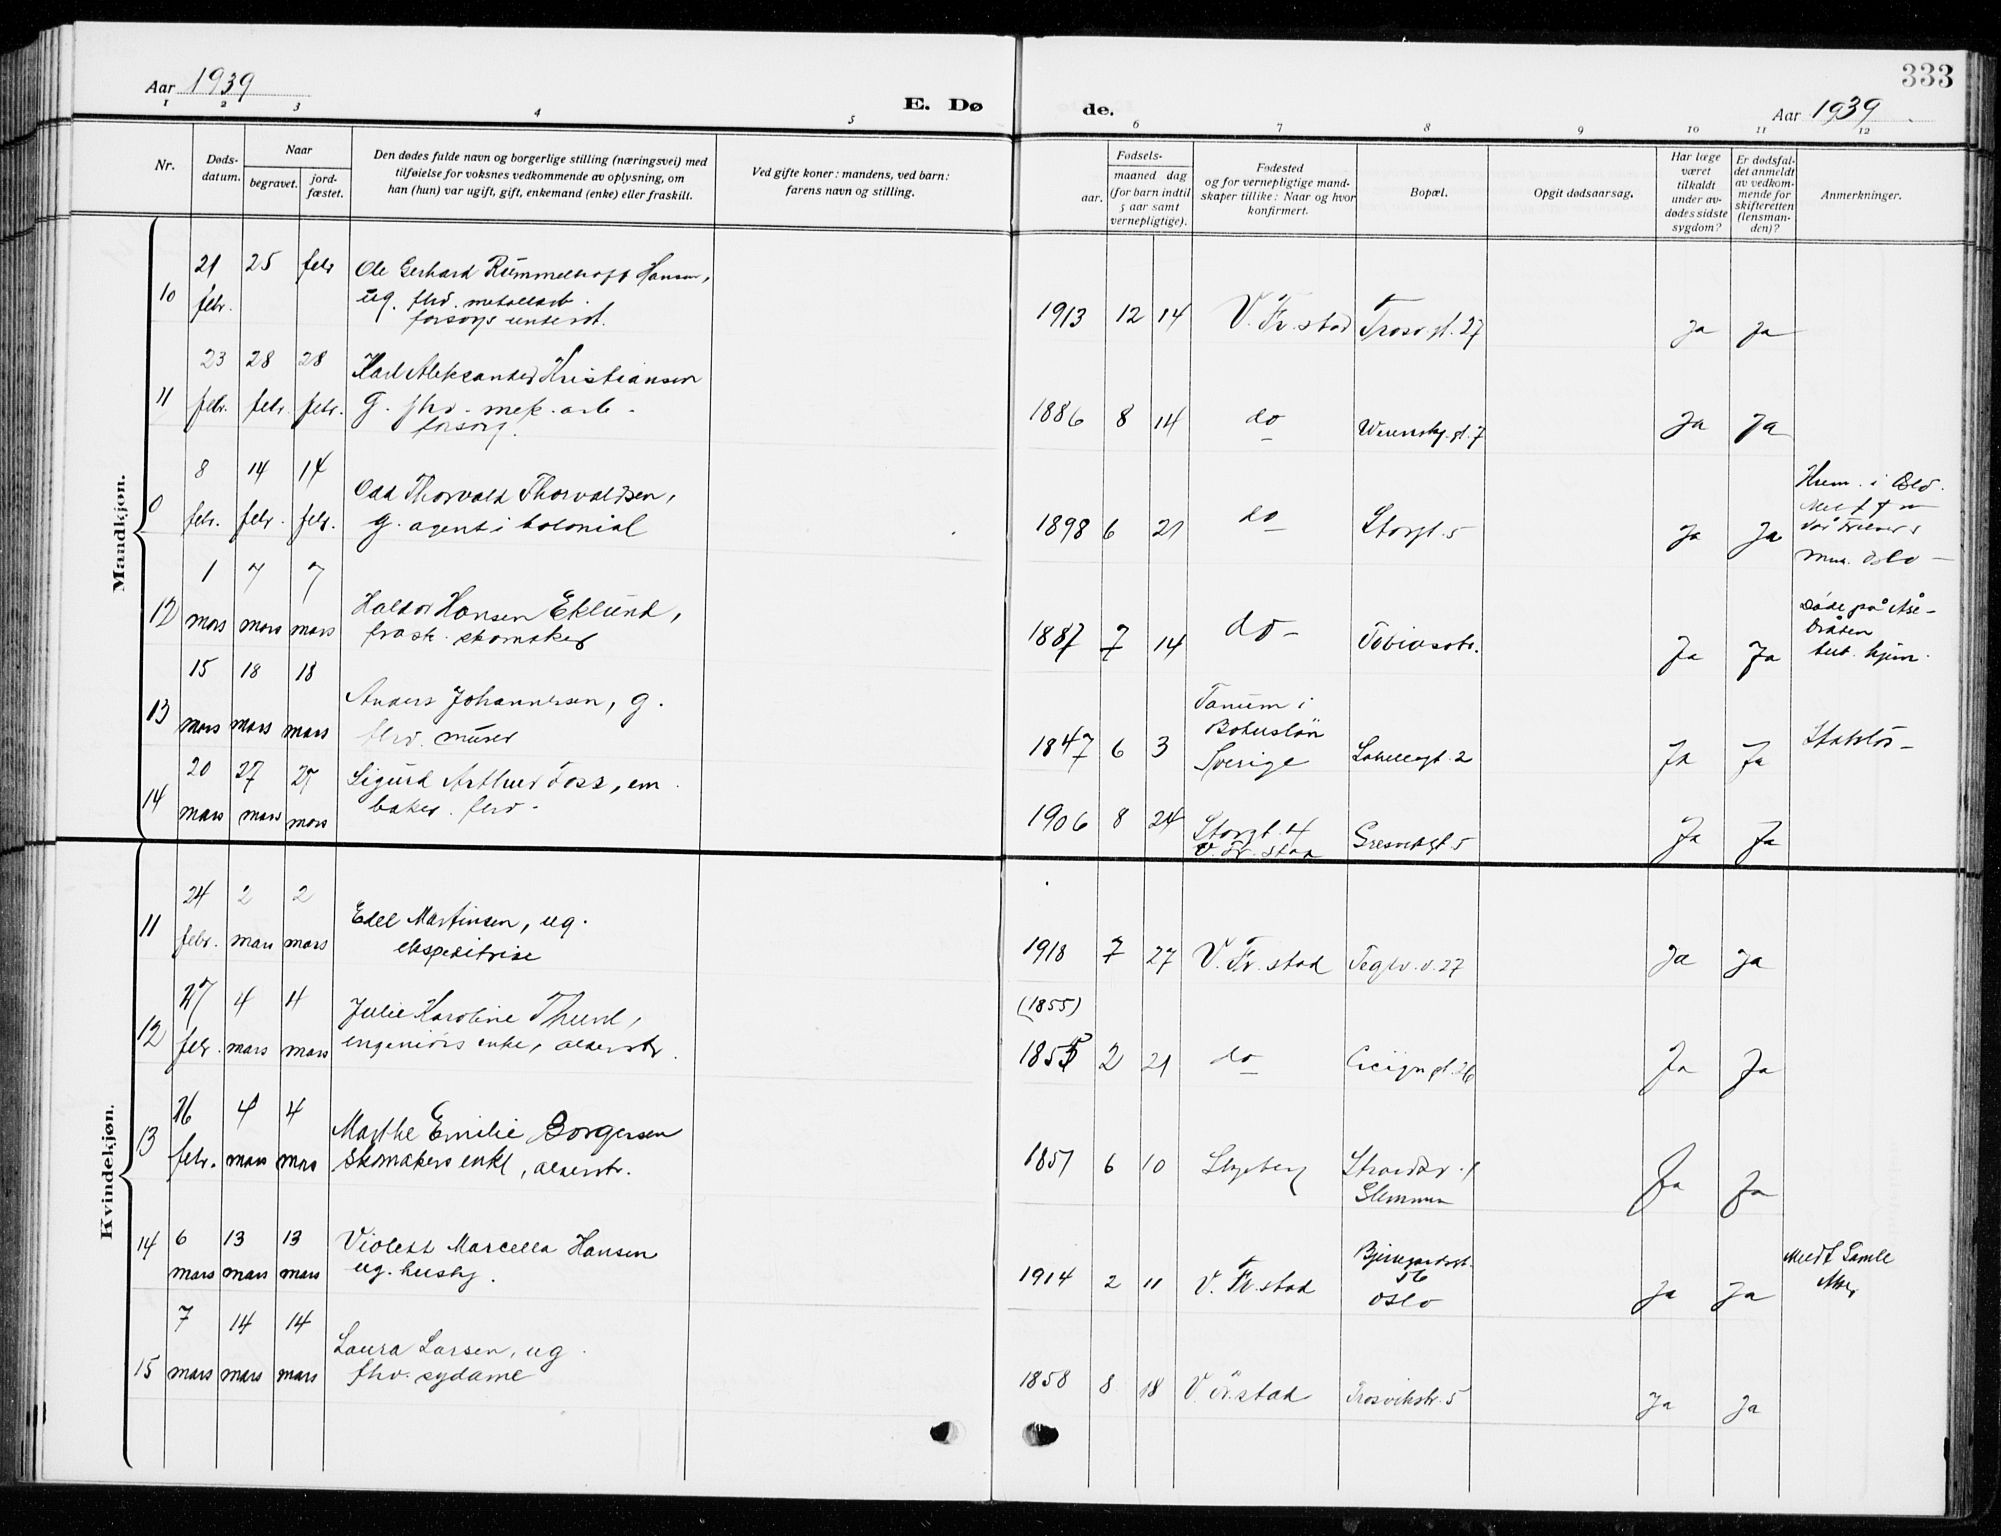 333
Aar 1939
E. Dø
de.
Aar 1939
1 2 3 4 5 6 7 8 9 10 11 12
Nr.
Døds-
datum.
Naar
begravet.
jord-
fæstet.
Den dødes fulde navn og borgerlige stilling (næringsvei) med
tilføielse for voksnes vedkommende av oplysning, om
han (hun) var ugift, gift, enkemand (enke) eller fraskilt.
Ved gifte koner: mandens, ved barn:
farens navn og stilling.
Fødsels-
aar.
maaned dag
(for barn indtil
5 aar samt
vernepligtige).
Fødested
og for vernepligtige mand-
skaper tillike: Naar og hvor
konfirmert.
Bopæl.
Opgit dødsaarsag.
Har læge
været
tilkaldt
under av-
dødes sidste
sygdom?
Er dødsfal-
det anmeldt
av vedkom-
mende for
skifteretten
(lensman-
den)?
Anmerkninger.
Mandkjøn.
10
21 25 febr
febr.
Ole Gerhard Rummelhoff Hansen,
ug. fhv. metallarb.
forsorgs underst.
1913 12 14 V. Fr.stad Trosvgt. 27 Ja Ja
11
23 28 28
febr. febr. febr.
Karl Aleksander Kristiansen
g. fhv. mek. arb.
forsorg.
1886 8 14 do Werenskj.gt. 7 Ja Ja
0
8 14 14
febr. febr. febr.
Odd Thorvald Thorvaldsen,
g. agent i kolonial
1898 6 21 do Storgt. 5 Ja Ja
12
1 7 7
mars mars mars
Haldor Hansen Eklund,
frask. skomaker
1887 7 14 do Tobiasbr. Ja Ja
Døde på Åse-
bråten
tub. hjem.
13
15 18 18
mars mars mars
Anders Johannesen, g.
fhv. murer
1847 6 3
Tanum i
Bohuslän
Sverige
Labellesgt. 2 Ja Ja
Statsløs
14
20 27 27
mars mars mars
Sigurd Arthur Foss, em
baker. fhv.
1906 8 24
Storgt. 4
V. Fr. stad
Gresvikgt 5 Ja Ja
Kvindekjøn.
11
24 2 2
febr. mars mars
Edel Martinsen, ug.
ekspeditrise
1918 7 27 V. Fr. stad Teglv. v. 27 Ja Ja
12
27 4 4
febr. mars mars
Julie Karoline Thund,
engeniørs enke, alderstr.
(1855)
1855 2 21 do Cicign.gt. 26 Ja Ja
13
26 4 4
febr. mars mars
Marthe Emilie Borgersen
skomakers enke, alderstr.
1857 6 10 Skjeberg
Glemmen
Ja Ja
14
6 13 13
mars mars mars
Violett Marcella Hansen
ug. hushj.
1914 2 11 V. Fr.stad
Bjerregaardsgt.
56
Oslo
Ja Ja
Meldt Gamle
Aker
15
7 14 14
mars mars mars
Laura Larsen, ug.
fhv. sydame
1858 8 18 V. Fr.stad Trosvikstr. 5 Ja Ja